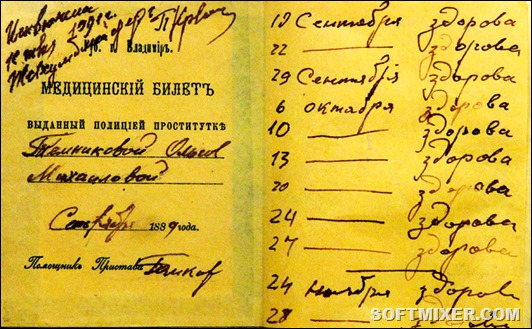 Исключена
г. Владимiръ.
МЕДИЦИНСКIЙ БИЛЕТЪ
ВЫДАННЫЙ ПОЛИЦIЕЙ ПРОСТИТУТКѢ
Ольгѣ
Михаиловой
Сентября 1889 года.
Помощникъ Пристава
19 Сентября здорова
22 — здорова
29 Сентября здорова
6 октября здорова
10 — здорова
13 — здорова
20 — здорова
24 — здорова
27 — здорова
24 ноября здорова
28 —
SOFTMIXER.COM